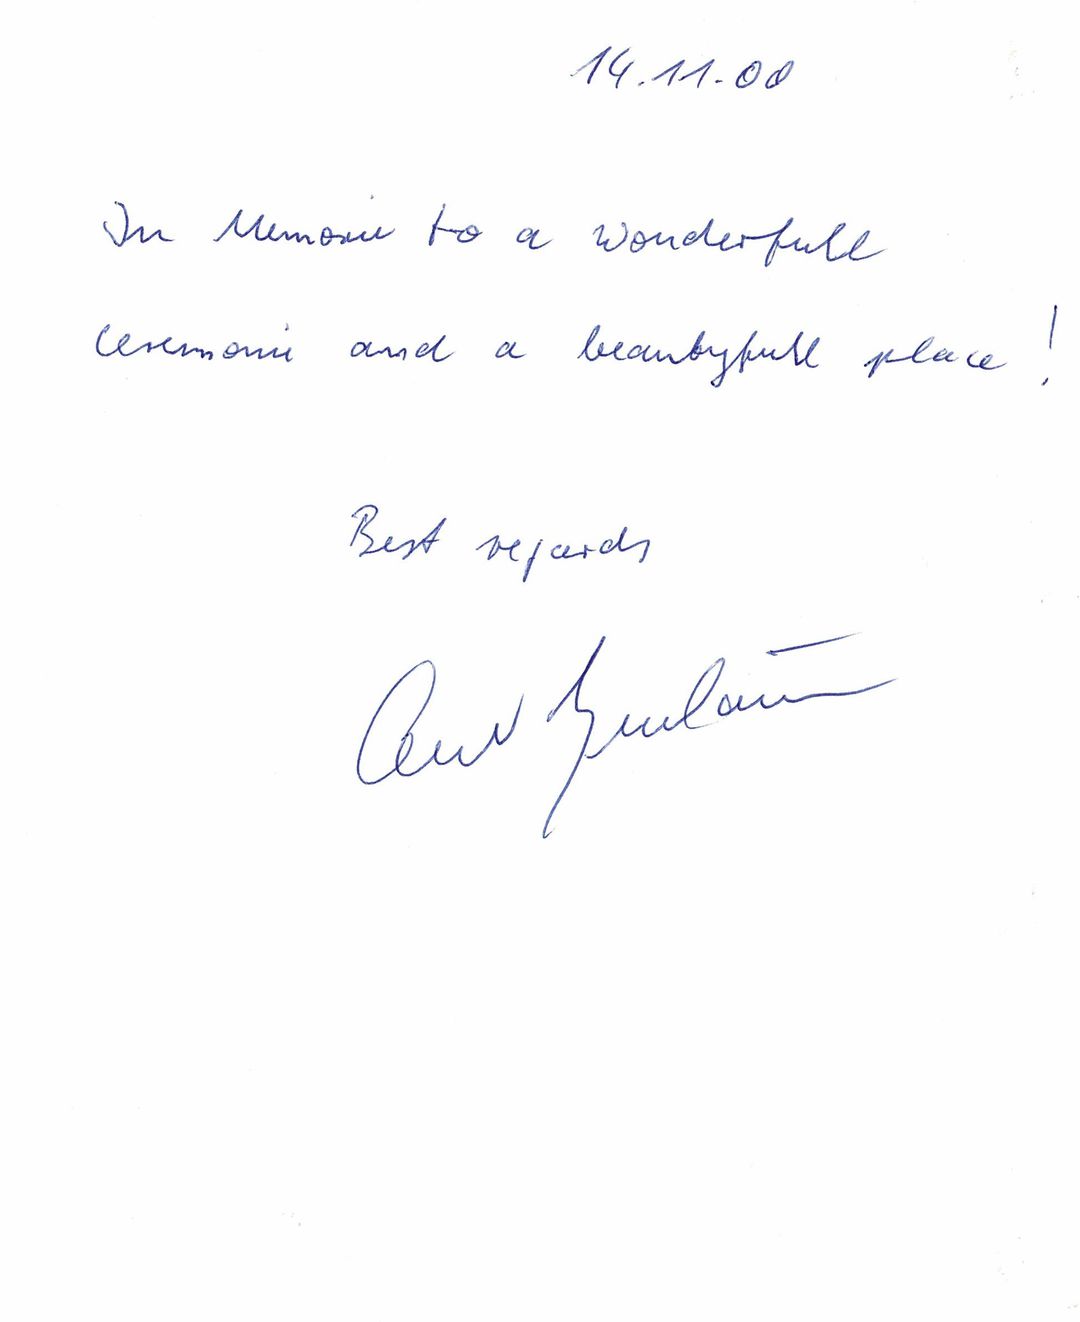 14.11.00
In Memorie to a wonderfull
Ceremonie and a beautyfull place!
Best regards